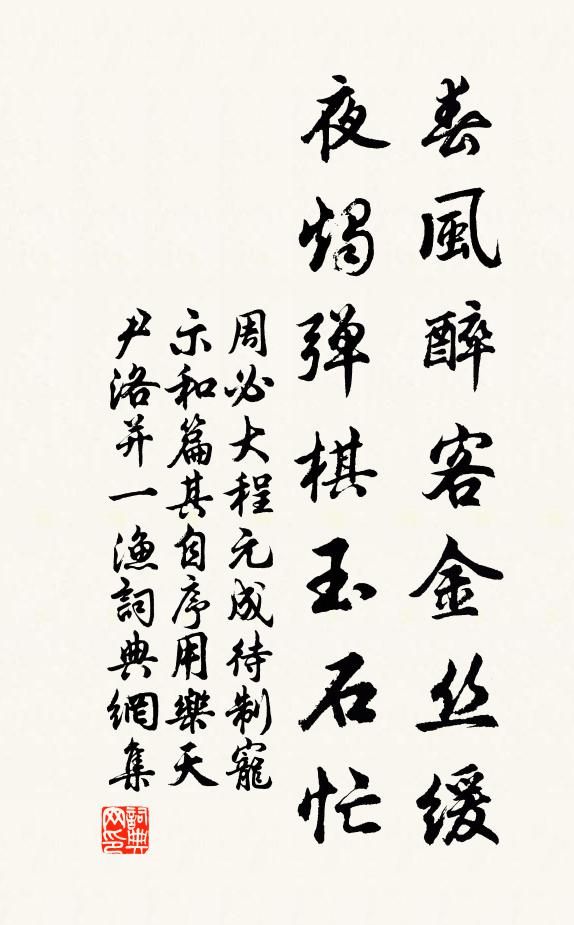 春風醉客金丝缓
夜燭弹棋玉石忙
周必大程元成待制寵
示和篇其自序用樂天
尹洛并一漁詞典網集
詞典网印